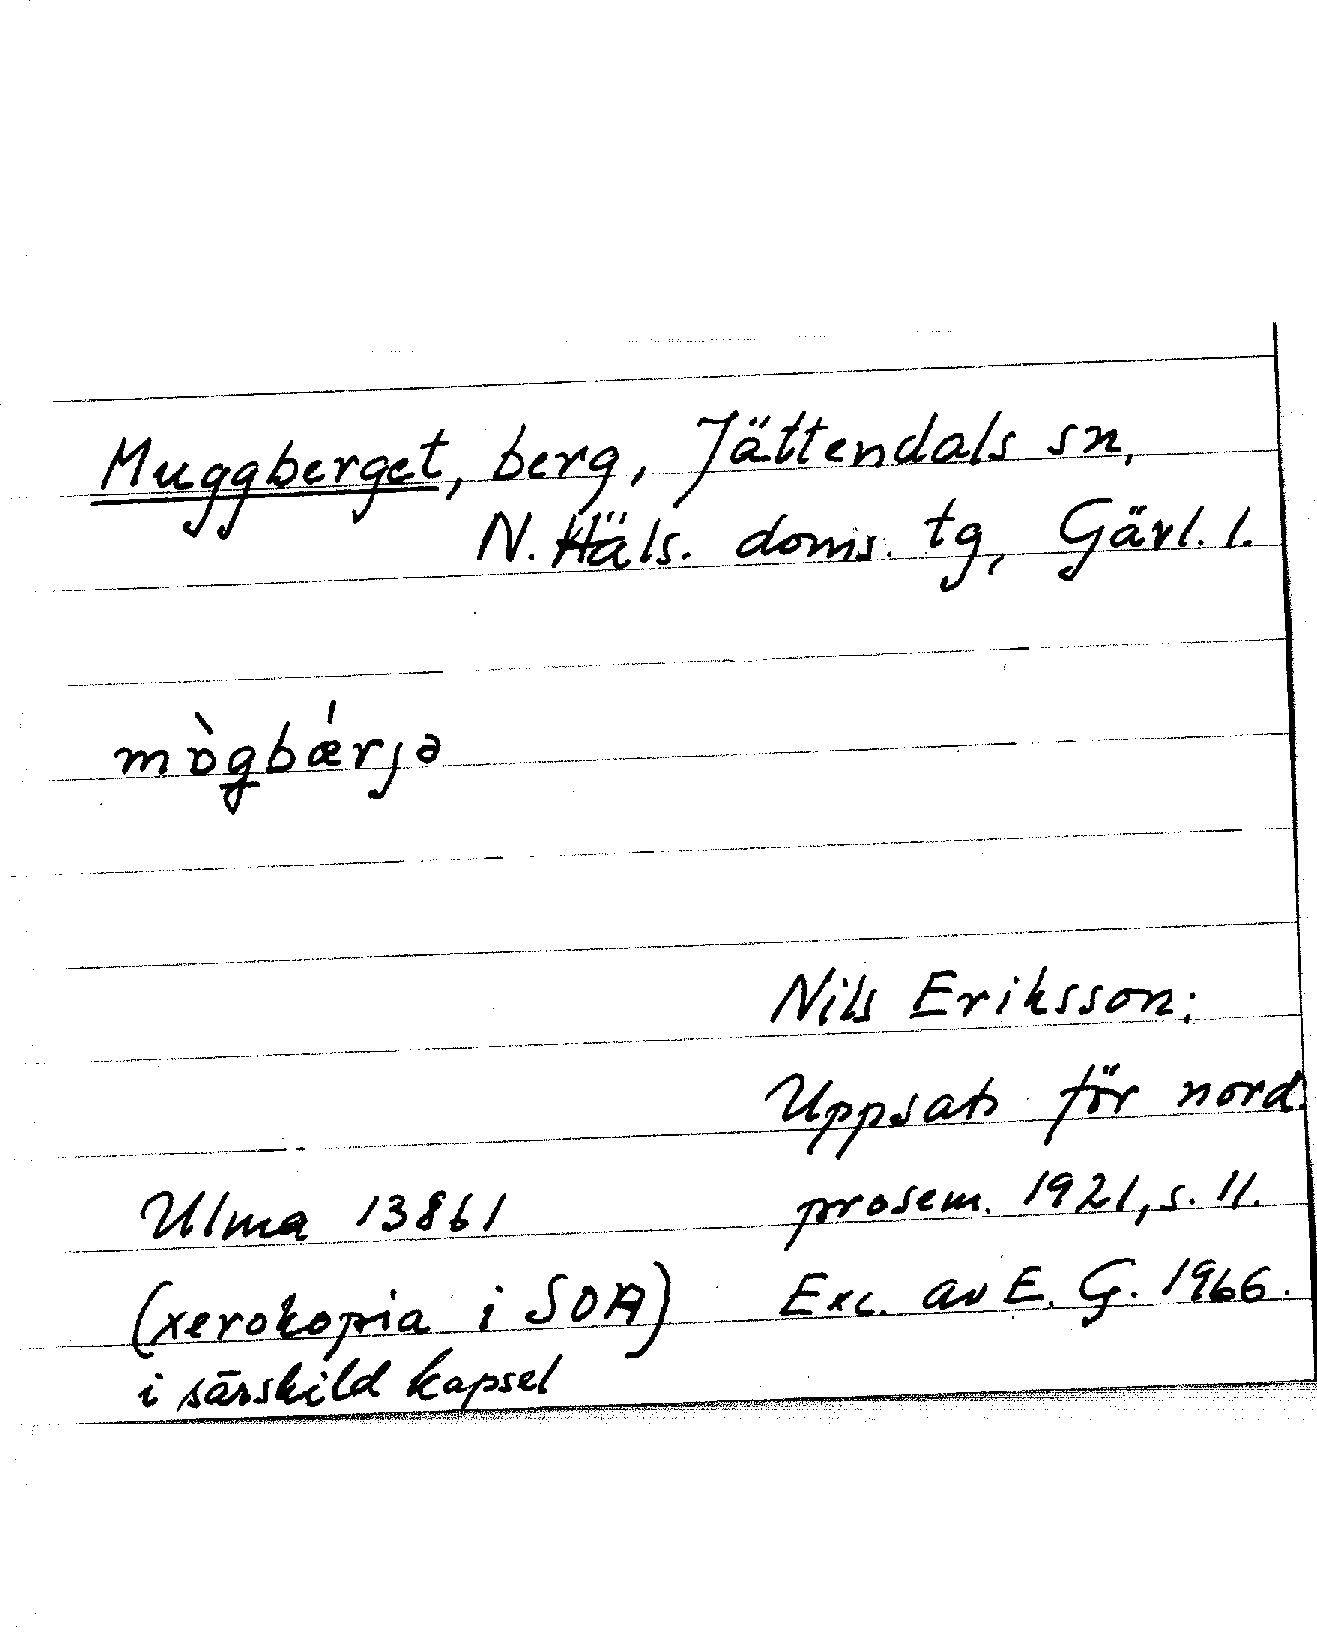 Muggberget, berg, Jättendals sn,
N. Häls. doms. tg, Gävl. l.
mògbǽrjə
Nils Eriksson:
Uppsats för nord.
prosem. 1921, s. 11.
Ulma 13861
(xerokopia i SOA)
Exc. av E. G. 1966.
i särskild kapsel